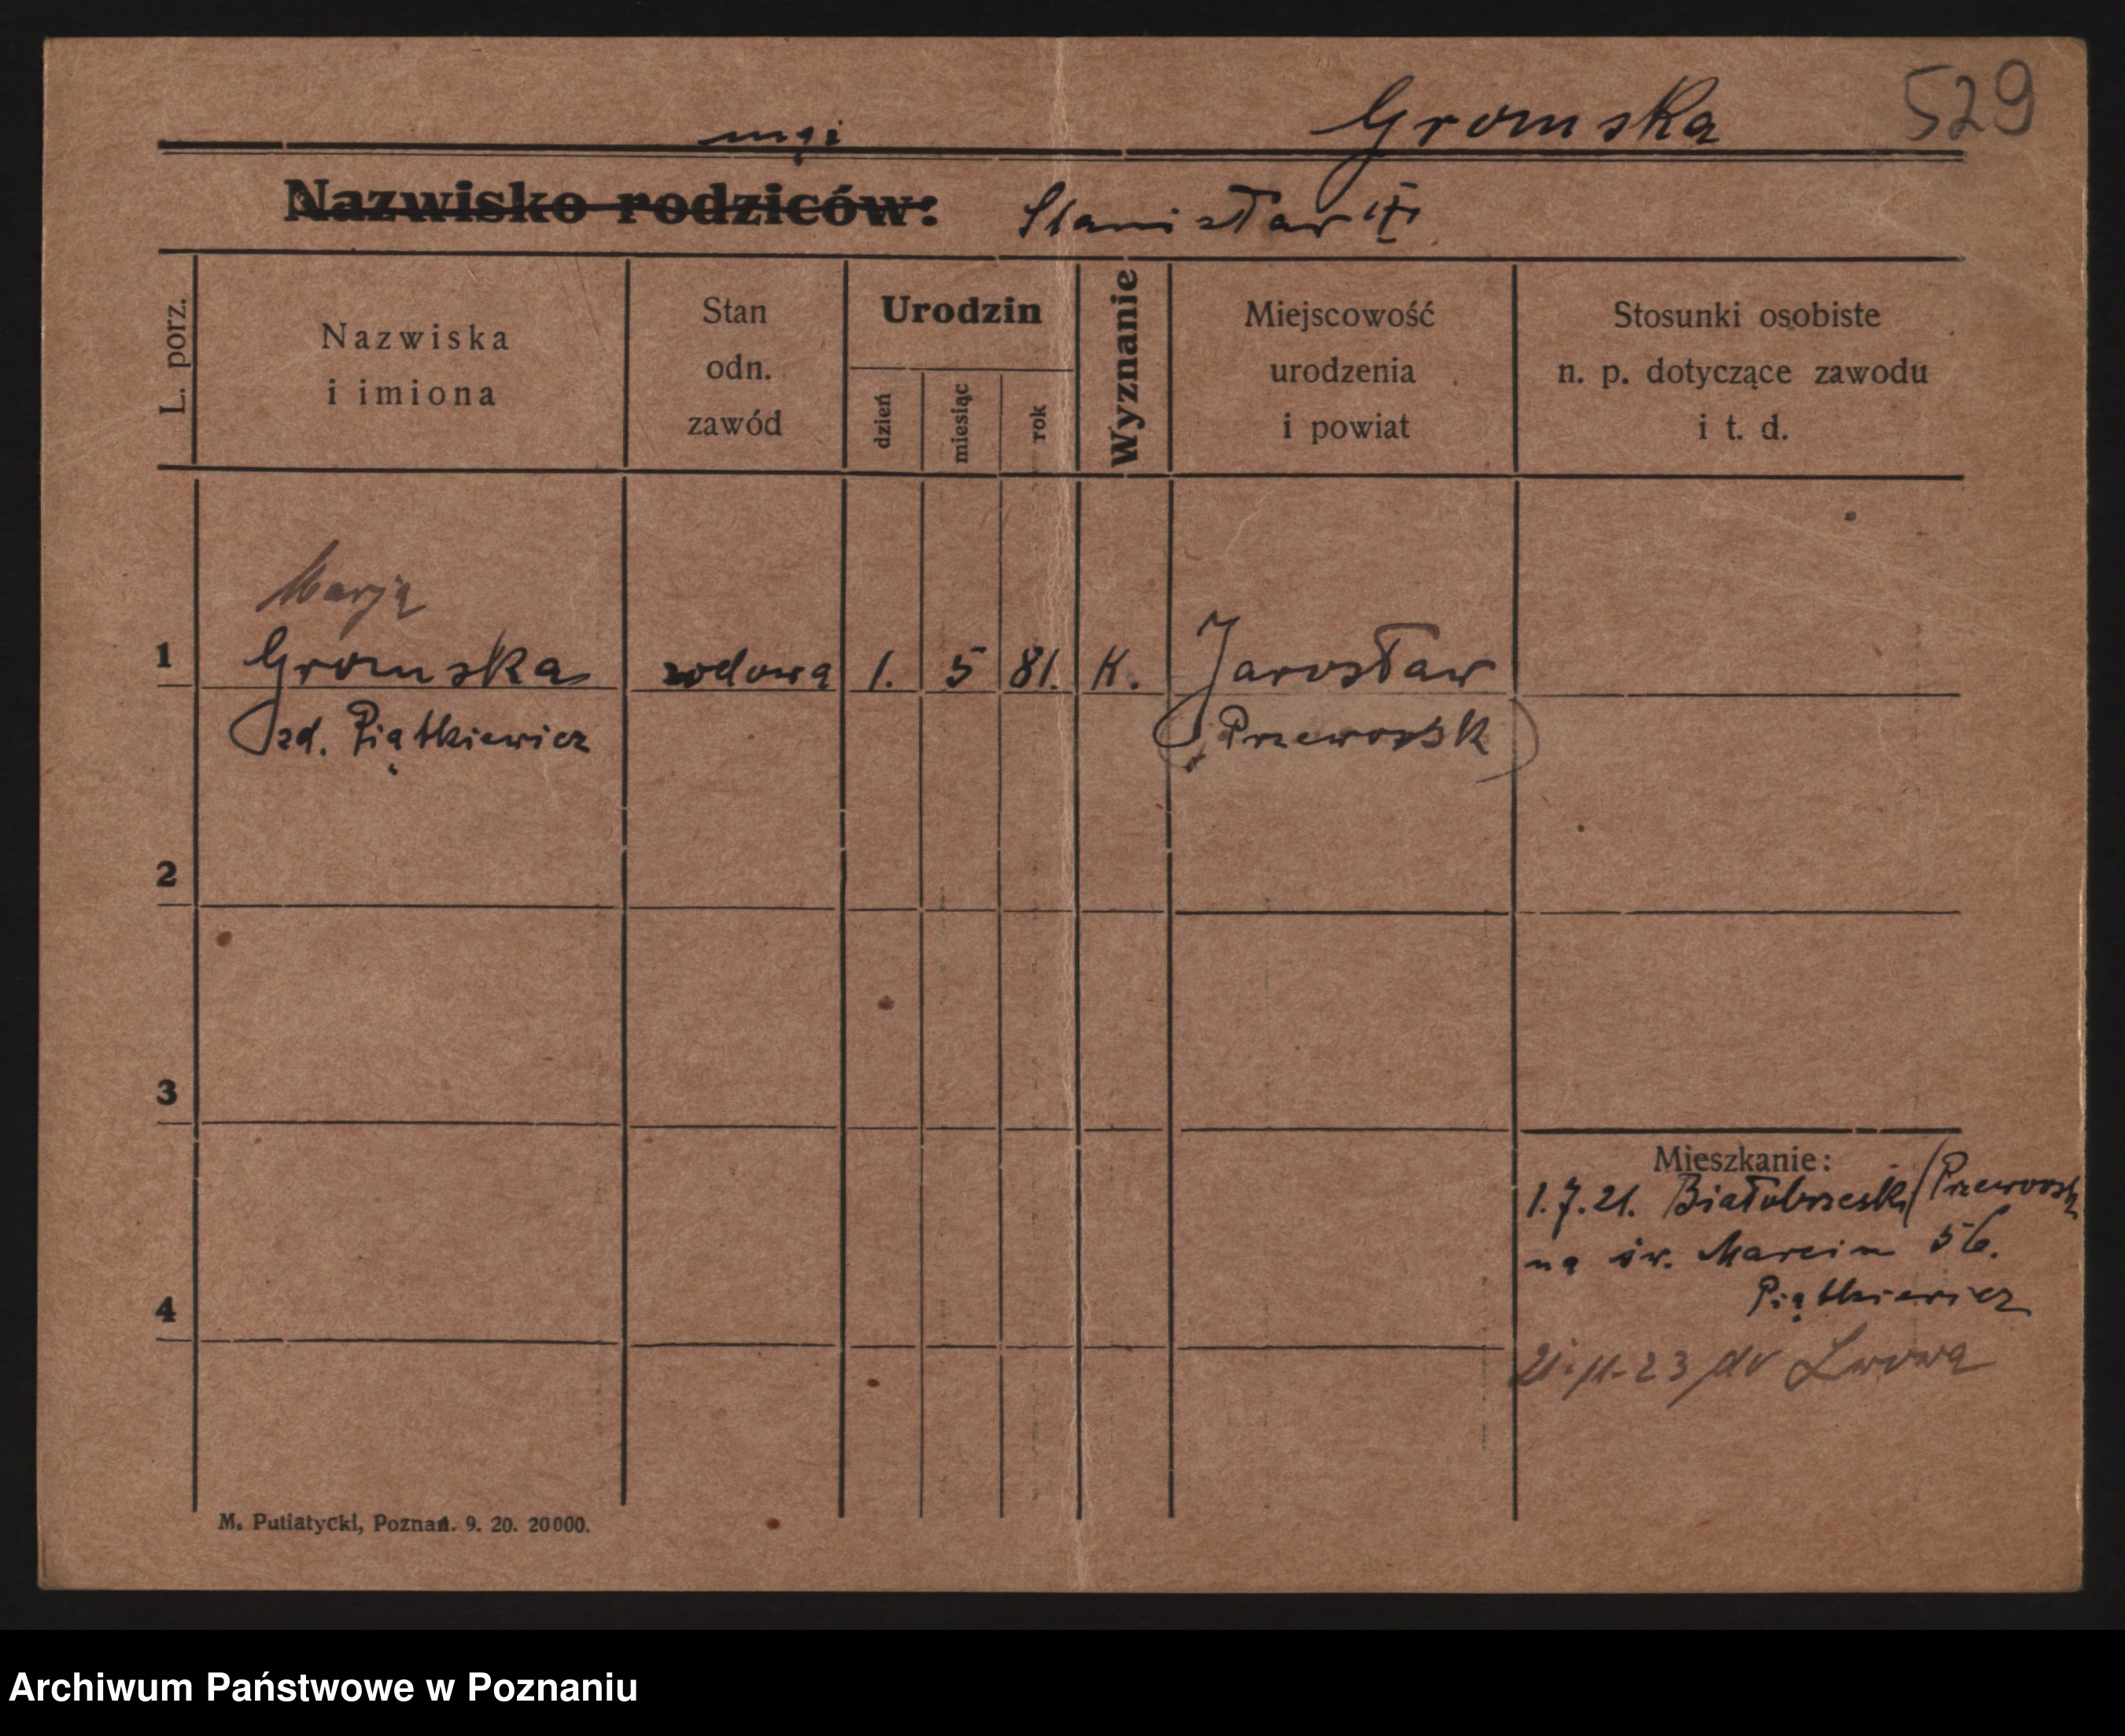 529
Gromska
mąż
Nazwisko rodziców: Stanisław
L. porz.
Nazwiska
i imiona
Stan
odn.
zawód
Urodzin
dzień
miesiąc
rok
Wyznanie
Miejscowość
urodzenia
i powiat
Stosunki osobiste
n. p. dotyczące zawodu
i t. d.
Marja
1 Gromska wdowa 1. 5 81. K. Jarosław
zd. Piątkiewicz (Przeworsk)
2
3
Mieszkanie:
1.7.21. Białobrzeski/Przeworsk
na św. Marcin 56.
Piątkiewicz
4
21-11-23 do Lwowa
M. Putiatycki, Poznań. 9. 20. 20000.
Archiwum Państwowe w Poznaniu